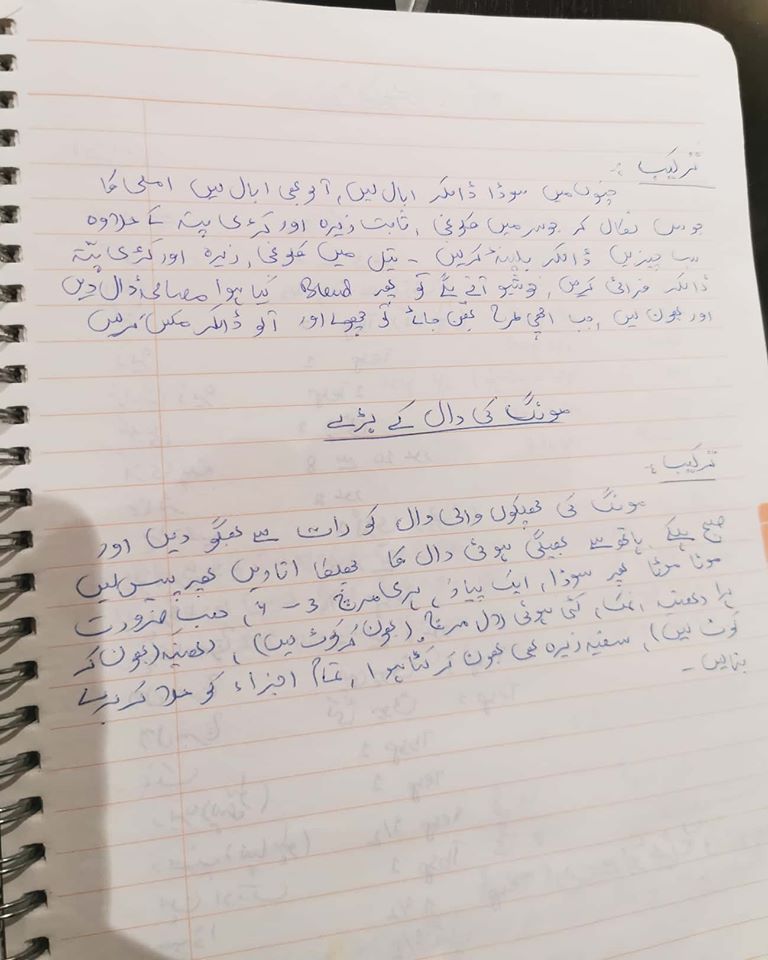 ترکیب:
چنوں میں سوڈا ڈالکر ابال لیں، آلو بھی ابال لیں املی کا
جوس نکال کر جوسر میں کلونجی، ثابت زیرہ اور کڑی پتہ کے علاوہ
سب چیزیں ڈالکر بلینڈ کریں ۔ تیل میں کلونجی، زیرہ اور کڑی پتّہ
ڈالکر فرائی کریں، خوشبو آنے لگے تو پھر Blend کیا ہوا مصالحہ ڈال دیں
اور بھون لیں، جب اچھی طرح بھن جائے تو چھولے اور آلو ڈالکر مکس کرلیں
مونگ کی دال کے بڑے
ترکیب:
مونگ کی چھلکوں والی دال کو رات سے بھگو دیں اور
صبح ہلکے ہاتھ سے بھیگی ہوئی دال کا چھلکا اتار دیں پھر پیس لیں
موٹا موٹا پھر سوڈا، ایک پیاز، ہری مرچ 3 - 4، حسب ضرورت
ہرا دھنیہ، نمک، کٹی ہوئی لال مرچ، (بھون کر کوٹ لیں)، دھنیہ (بھون کر
کوٹ لیں)، سفید زیرہ بھی بھون کر کٹا ہوا، تمام اجزاء کو ملا کر بڑے
بنالیں ۔